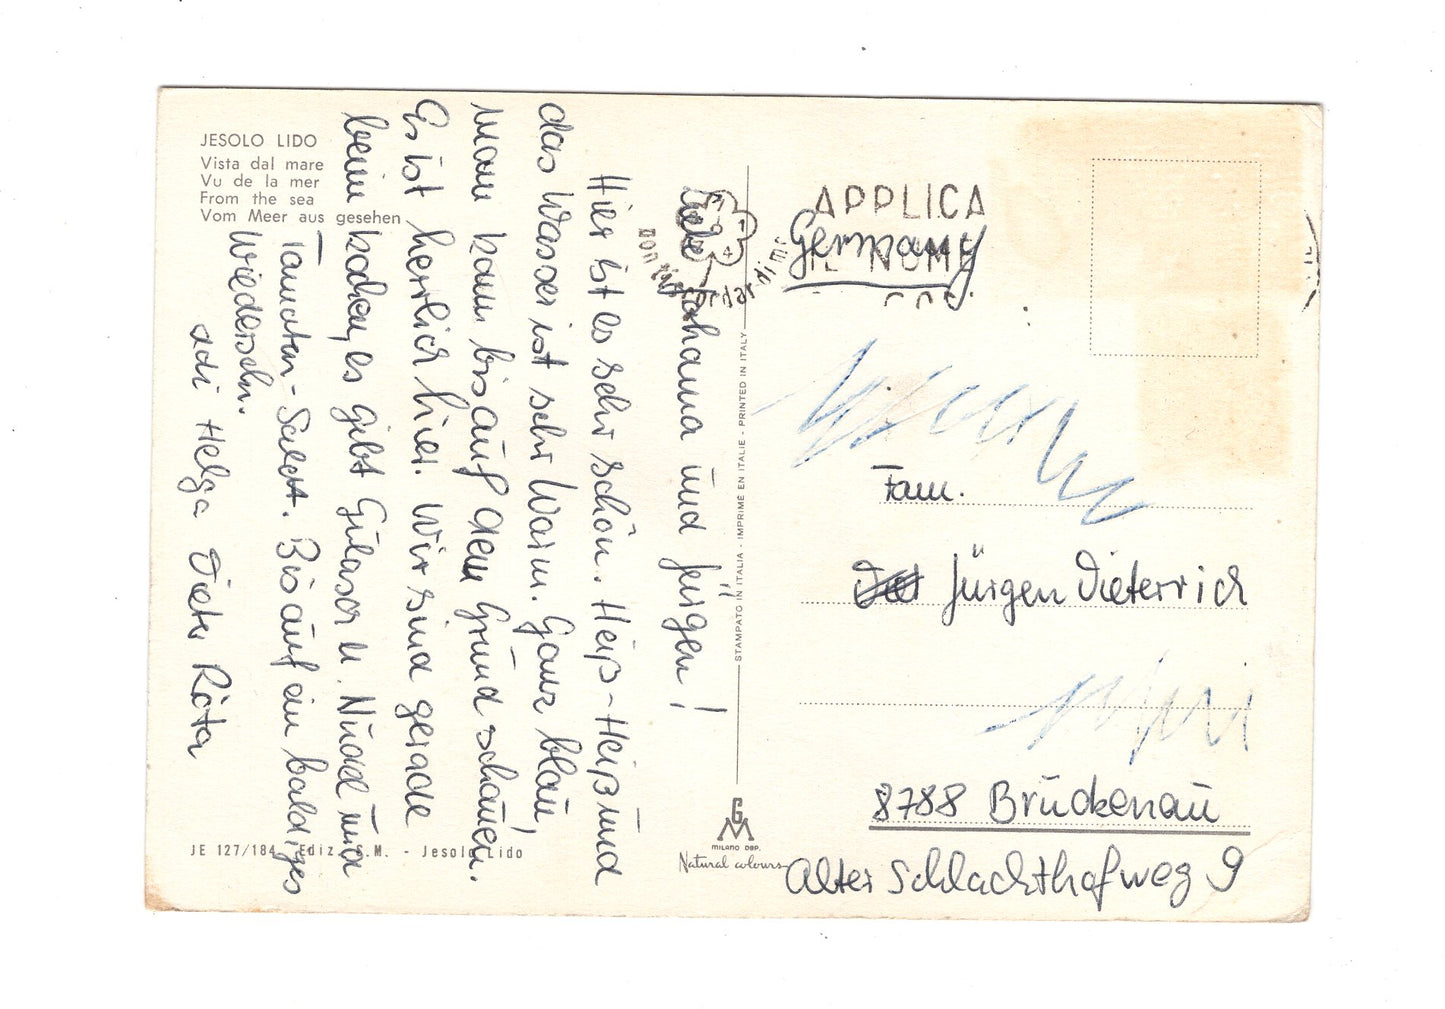 JESOLO LIDO
Vista dal mare
Vu de la mer
From the sea
Vom Meer aus gesehen
Liebe Johanna und Jürgen!
Hier ist es sehr schön. Heiß-Heiß und
das Wasser ist sehr Warm. Ganz blau,
man kann bis auf den Grund schauen.
Es ist herrlich hier. Wir sind gerade
beim kochen, es gibt Gulasch u. Nudel und
Tomaten-Salat. Bis auf ein baldiges
Wiedersehn.
adi Helga Dieter
JE 127/184 Ediz. S.M. - Jesolo Lido
STAMPATO IN ITALIA - IMPRIMÉ EN ITALIE - PRINTED IN ITALY
GM
MILANO DEP.
Natural colours
non ti
APPLICA
IL NOME
Germany
Fam.
Jürgen Dieterrich
8788 Brückenau
Alter Schlachthofweg 9